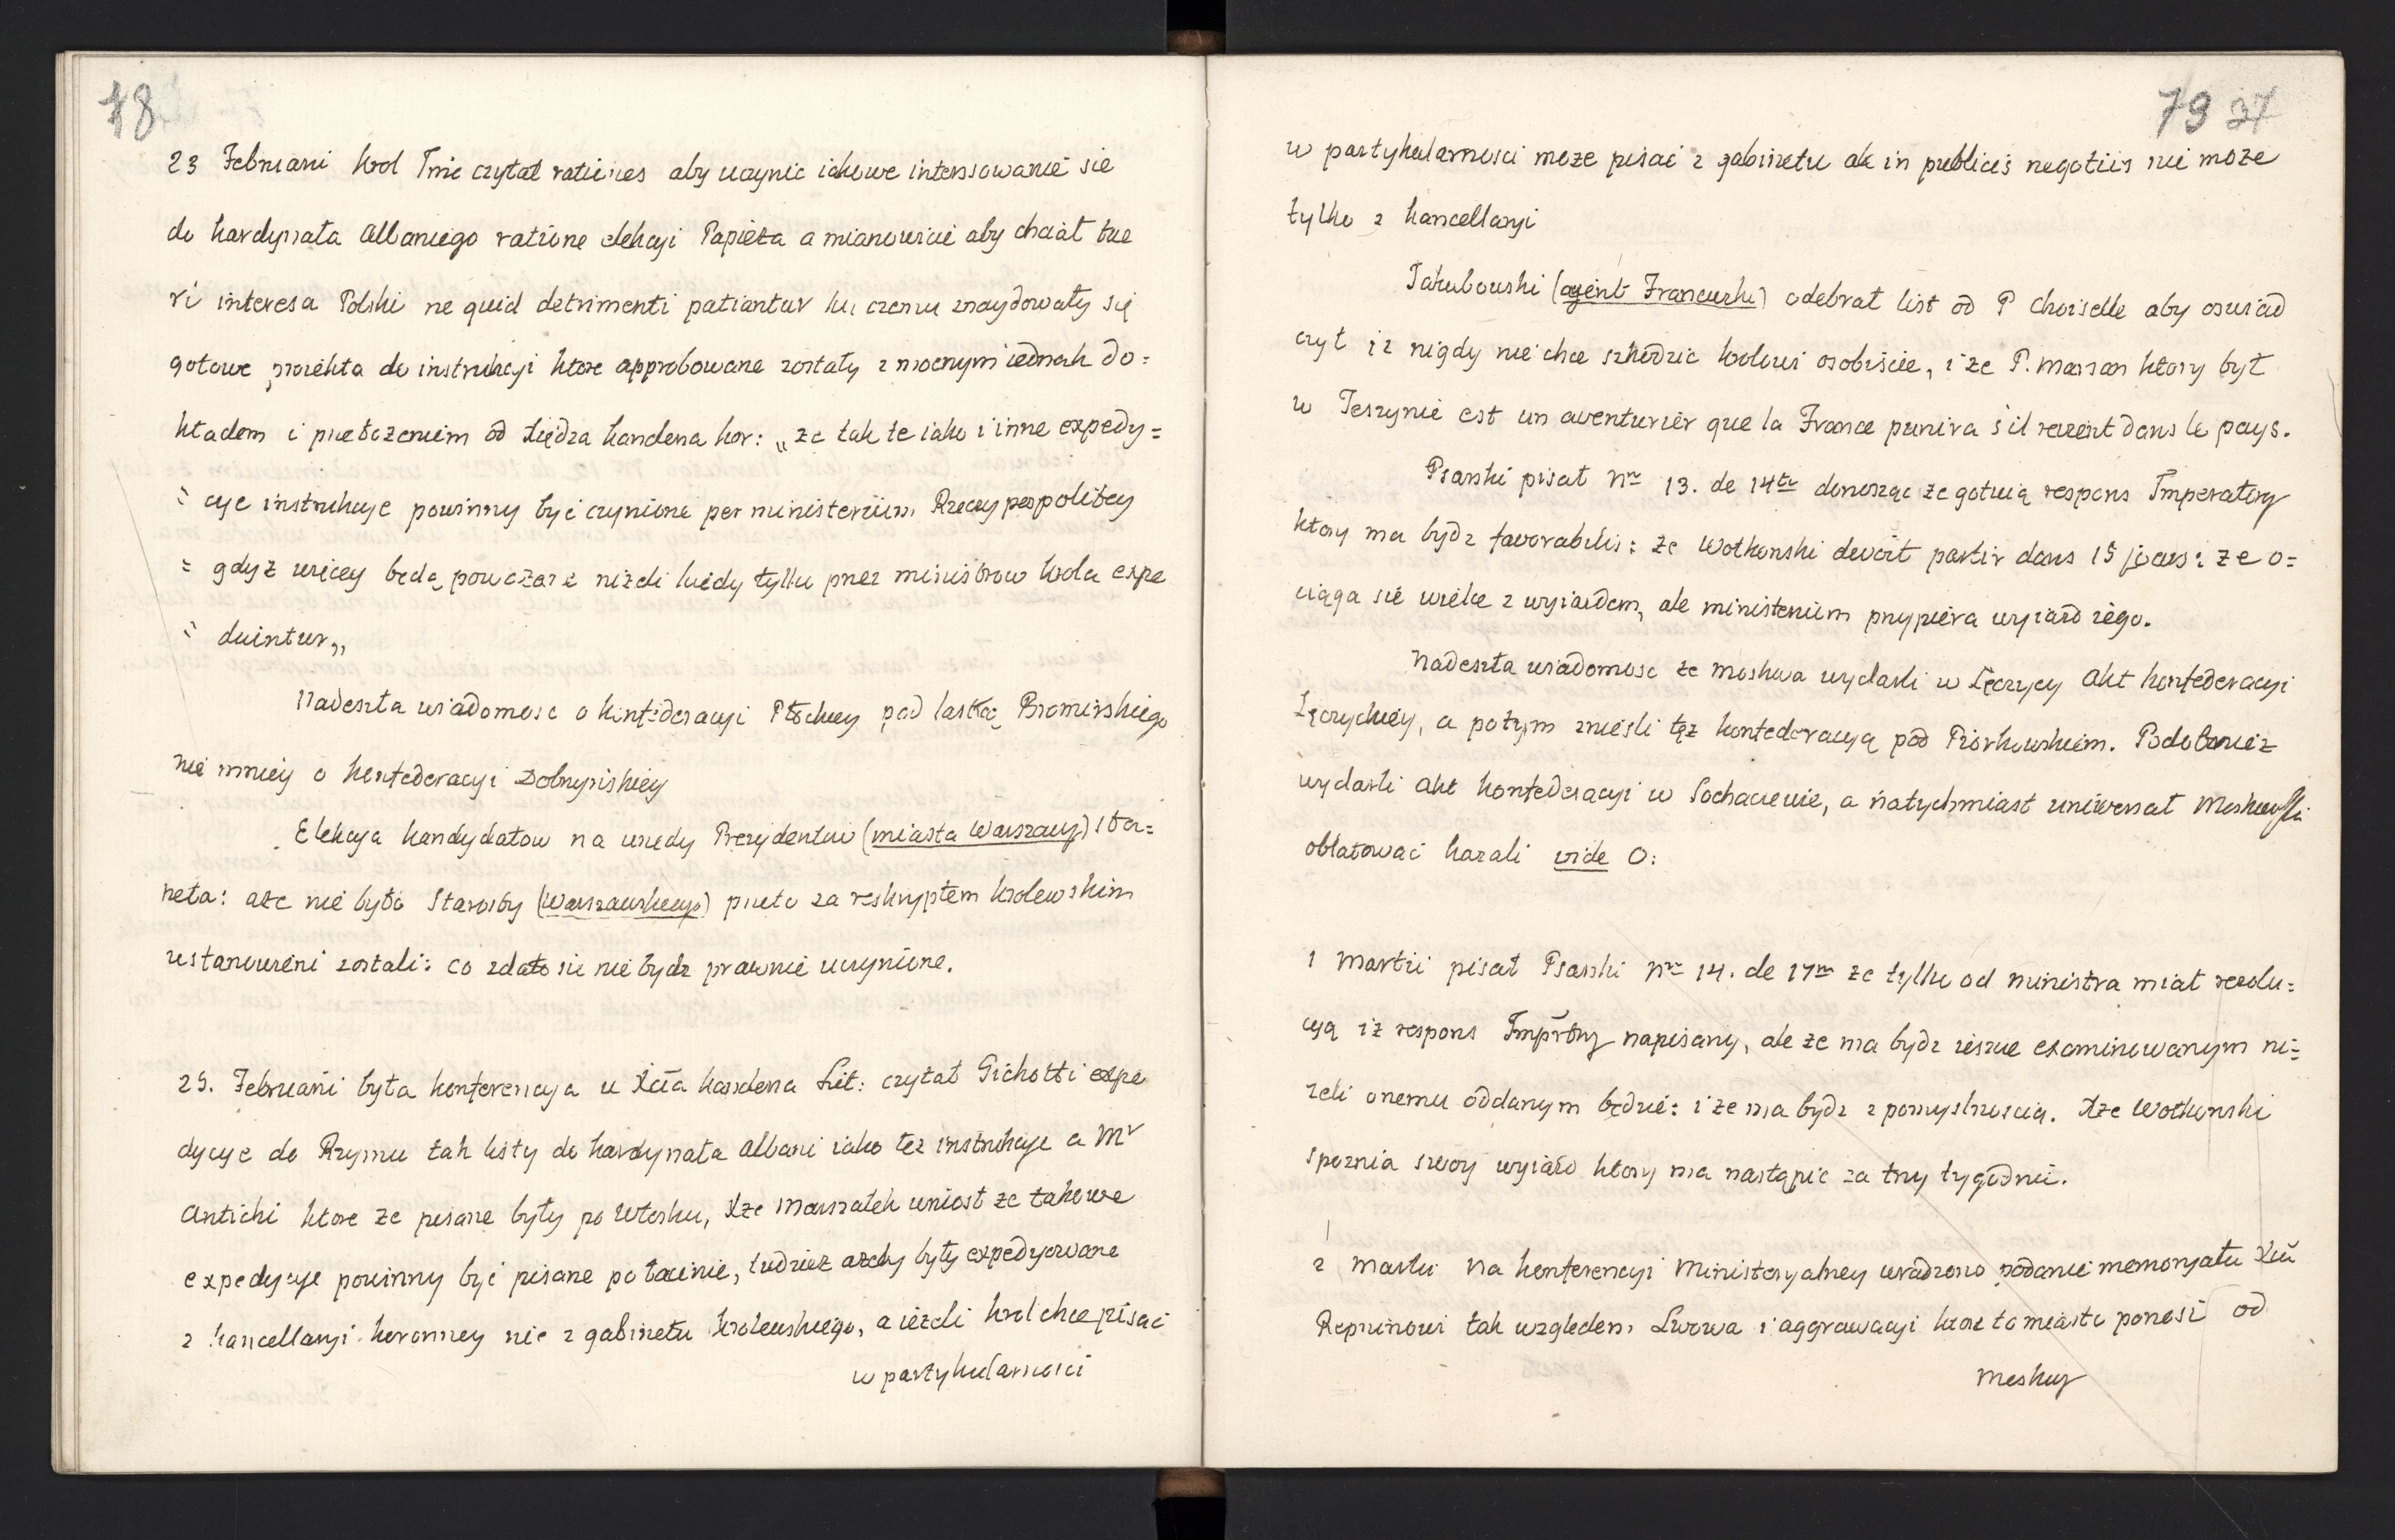 78
23 Februarii Krol Jmć czytał rationes aby uczynic iakowe interessowanie sie
do kardynała Albaniego ratione elekcyi Papieża a mianowicie aby chciał tue
ri interesa Polski ne quid detrimenti patiantur ku czemu znaydowały się
gotowe proiekta do instrukcyi ktore approbowane zostały z mocnym iednak do=
kładem i przełożeniem od Xiędza kanclerza kor: „że tak te iako i inne expedy=
= cye instrukcye powinny być czynione per ministerium Rzeczypospolitey
= gdyż więcey będą poważane niżeli kiedy tylko przez ministrow Krola expe
= diuntur„
Nadeszła wiadomosc o konfederacyi Płockiey pod laską Bromirskiego
nie mniey o konfederacyi Dobrzynskiey
Elekcya kandydatow na urzędy Prezydentow (miasta Warszawy) i tak=
neta: ale nie było Starosty (Warszawskiego) przeto za reskryptem krolewskim
ustanowieni zostali: co zdało sie nie bydz prawnie uczynione.
25. Februarii była konferencya u Xcia kanclerza Lit: czytał Gichotti expe
dycye do Rzymu tak listy do kardynała Albani iako też instrukcye a Mr
Antichi ktore że pisane były po Włosku, Xże Marszałek wniosł że takowe
expedycye powinny być pisane po łacinie, tudzież ażeby były expedyowane
z kancellaryi koronney nie z gabinetu krolewskiego, a ieżeli krol chce pisać
w partykularnosci
79 37
w partykularnosci może pisać z gabinetu ale in publicis negotiis nie może
tylko z kancellaryi
Jakubowski (agent Francuzki) odebrał list od P Choiselle aby oswiad
czył iz nigdy nie chce szkodzic krolowi osobiście, i że P. Massan ktory był
w Teszynie est un aventurier que la France punira s'il revient dans le pays.
Psarski pisał Nro 13. de 14ta donosząc że gotuią respons Imperatory
ktory ma bydz favorabilis: że Wołkonski devoit partir dans 15 jours: że o=
ciąga sie wielce z wyiazdem, ale ministerium przypiera wyiazd iego.
Nadeszła wiadomosc że Moskwa wydarli w Lęczycy Akt konfederacyi
Łęczyckiey, a potym znieśli tęż konfederacyą pod Piorkowskiem. Podobnież
wydarli Akt konfederacyi w Sochaczewie, a natychmiast uniwersał Moskiewski
oblatować kazali vide O:
1 Martii pisał Psarski Nro 14. de 17ma że tylko od ministra miał rezolu=
cyą iż respons Imprtory napisany, ale że ma bydz ieszcze examinowanym ni=
żeli onemu oddanym będzie: i że ma bydz z pomyslnoscią. Xże Wołkonski
spoznia swoy wyiazd ktory ma nastąpic za trzy tygodnie.
2 Martii Na konferencyi Ministeryalney uradzono podanie memoryału Xciu
Repninowi tak wzgledem Lwowa i aggrawacyi ktore to miasto ponosi od
Moskwy